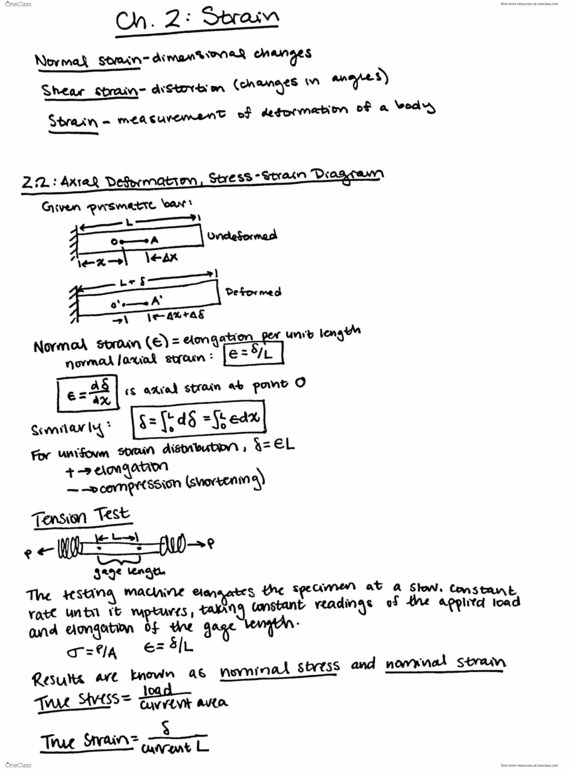 OneClass
find more resources at oneclass.com
Ch. 2: Strain
Normal strain - dimensional changes
Shear strain - distortion (changes in angles)
Strain - measurement of deformation of a body
2.2: Axial Deformation, Stress-Strain Diagram
Given prismatic bar:
L
O A Undeformed
x Δx
L + δ
O' A' Deformed
Δx + Δδ
Normal strain (ϵ) = elongation per unit length
normal/axial strain: ϵ = δ/L
ϵ = dδ/dx is axial strain at point O
Similarly: δ = ∫₀ᴸ dδ = ∫₀ᴸ ϵdx
For uniform strain distribution, δ = ϵL
+ → elongation
- → compression (shortening)
Tension Test
P L P
gage length
The testing machine elongates the specimen at a slow, constant
rate until it ruptures, taking constant readings of the applied load
and elongation of the gage length.
σ = P/A ϵ = δ/L
Results are known as nominal stress and nominal strain
True Stress = load / current area
True Strain = δ / current L
OneClass
find more resources at oneclass.com